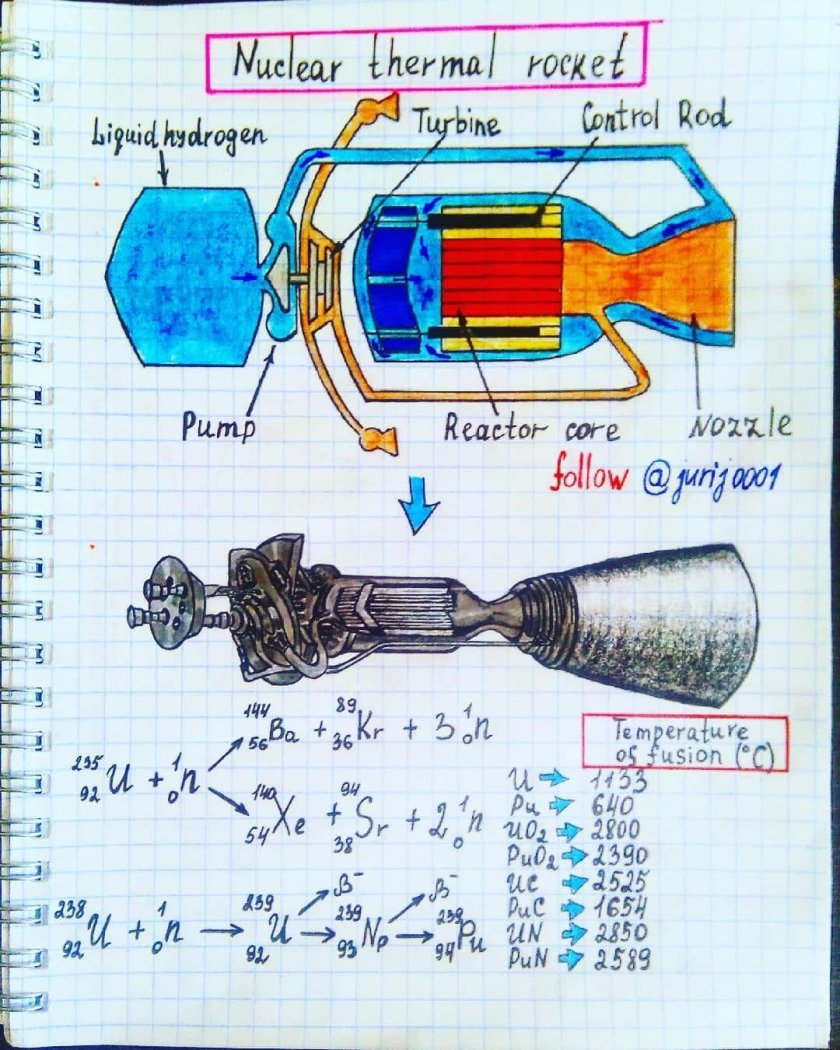 Nuclear thermal rocket
Liquid hydrogen
Turbine
Control Rod
Pump
Reactor core
Nozzle
follow @jurij0001
²³⁵₉₂U + ¹₀n
¹⁴⁴₅₆Ba + ⁸⁹₃₆Kr + 3 ¹₀n
¹⁴⁰₅₄Xe + ⁹⁴₃₈Sr + 2 ¹₀n
β⁻ β⁻
²³⁸₉₂U + ¹₀n → ²³⁹₉₂U → ²³⁹₉₃Np → ²³⁹₉₄Pu
Temperature
of fusion (°C)
U → 1133
Pu → 640
UO₂ → 2800
PuO₂ → 2390
UC → 2525
PuC → 1654
UN → 2850
PuN → 2589